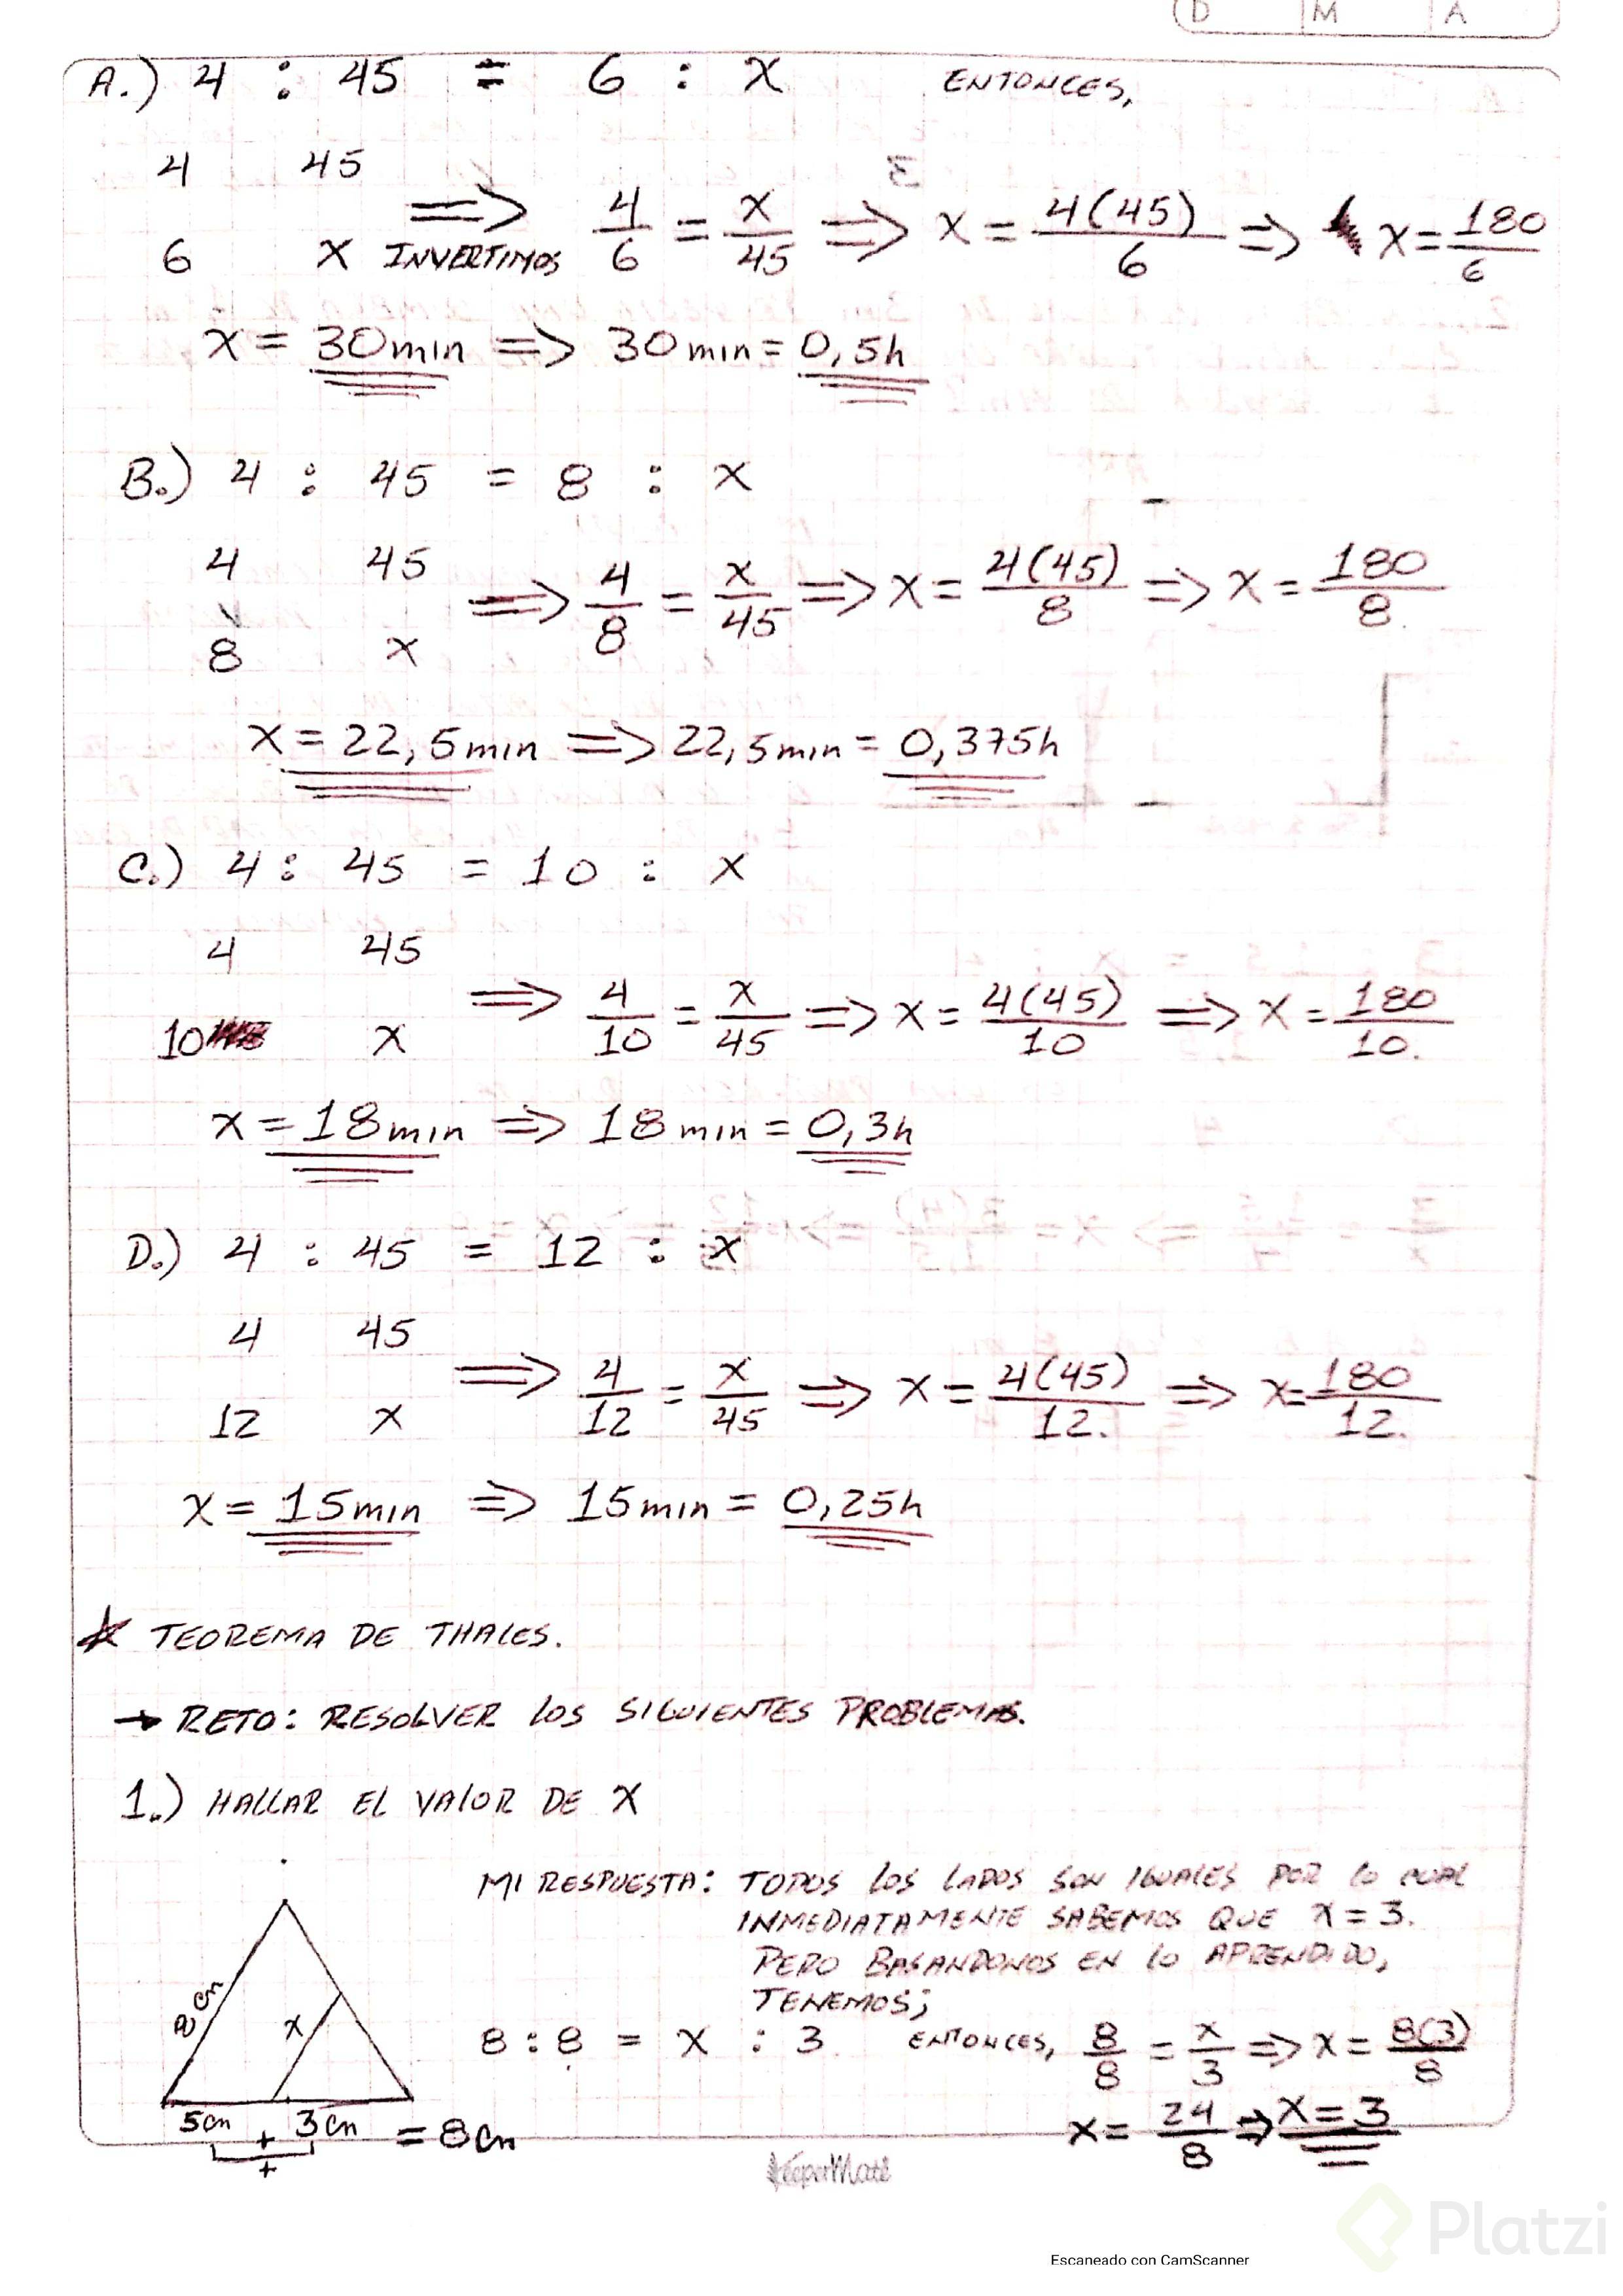 D M A
A.) 4 : 45 = 6 : x ENTONCES,
4 45
6 x INVERTIMOS => 4/6 = x/45 => x = 4(45)/6 => x = 180/6
x = 30min => 30min = 0,5h
B.) 4 : 45 = 8 : x
4 45
8 x => 4/8 = x/45 => x = 4(45)/8 => x = 180/8
x = 22,5min => 22,5min = 0,375h
C.) 4 : 45 = 10 : x
4 45
10 x => 4/10 = x/45 => x = 4(45)/10 => x = 180/10.
x = 18min => 18min = 0,3h
D.) 4 : 45 = 12 : x
4 45
12 x => 4/12 = x/45 => x = 4(45)/12. => x = 180/12.
x = 15min => 15min = 0,25h
★ TEOREMA DE THALES.
→ RETO: RESOLVER LOS SIGUIENTES PROBLEMAS.
1.) HALLAR EL VALOR DE X
MI RESPUESTA: TODOS LOS LADOS SON IGUALES POR LO CUAL
INMEDIATAMENTE SABEMOS QUE X = 3.
PERO BASANDONOS EN LO APRENDIDO,
TENEMOS;
8 cm x
8 : 8 = x : 3 ENTONCES, 8/8 = x/3 => x = 8(3)/8
5cm + 3cm = 8cm
+
x = 24/8 => x = 3
KeeperMate
Platzi
Escaneado con CamScanner